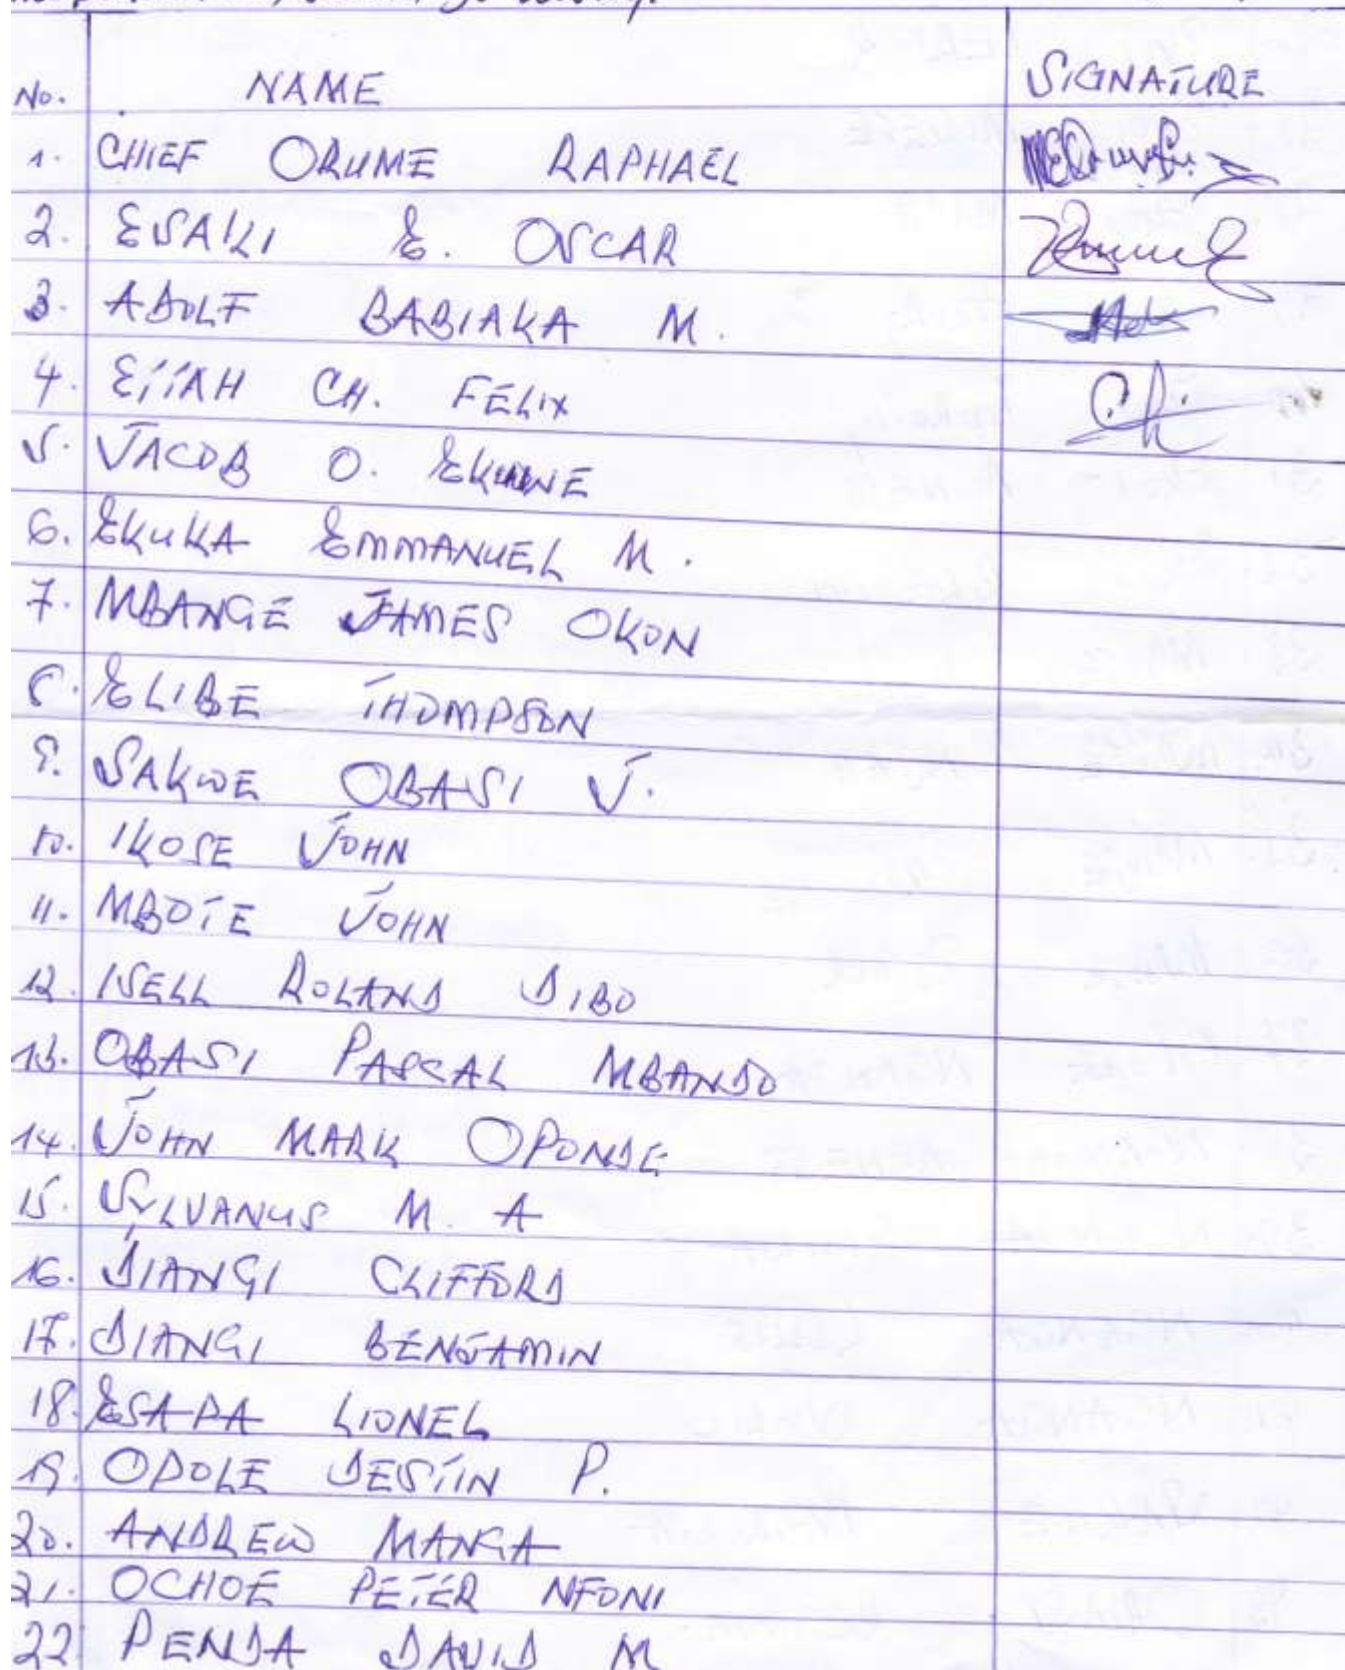 No. NAME SIGNATURE
1. CHIEF ORUME RAPHAEL
2. ESAKI E. OSCAR
3. ADOLF BABIAKA M.
4. ETTAH CH. FELIX
5. JACOB O.
6. EKUKA EMMANUEL M.
7. MBANGE JAMES OKON
8. ELIBE THOMPSON
9. SAKWE OBASI J.
10. IKOSE JOHN
11. MBOTE JOHN
12. ISELL ROLAND DIBO
13. OBASI PASCAL MBANDO
14. JOHN MARK OPONDE
15. SYLVANUS M. A
16. DIANGI CLIFFORD
17. DIANGI BENJAMIN
18. ESAPA LIONEL
19. ODOLE DESTIN P.
20. ANDREW MANGA
21. OCHOE PETER NFONI
22. PENDA DAVID M